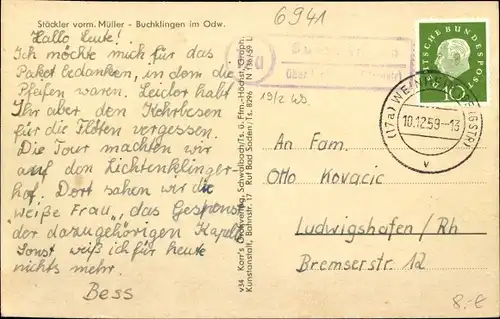 Stäckler vorm. Müller - Buchklingen im Odw.
6941
Hallo Leute!
Ich möchte mich für das
Paket bedanken, in dem die
Pfeifen waren. Leider habt
Ihr aber den Kehrbesen
für die Flöten vergessen.
Die Tour machten wir
auf den Lichtenklinger-
hof. Dort sahen wir die
"weiße Frau", das Gespenst
der dazugehörigen Kapelle
Sonst weiß ich für heute
nichts mehr.
Bess
v34 Karr's Schwalbach/Ts. u. Ffm.-Höchst
Kunstanstalt, Bahnstr. 17 Ruf Bad Soden/Ts. 8296
über
19/2
DEUTSCHE BUNDESPOST
10
(17a) WEINHEIM
10.12.59-13
v
An Fam.
Otto Kovacic
Ludwigshafen / Rh
Bremserstr. 12
8.-€